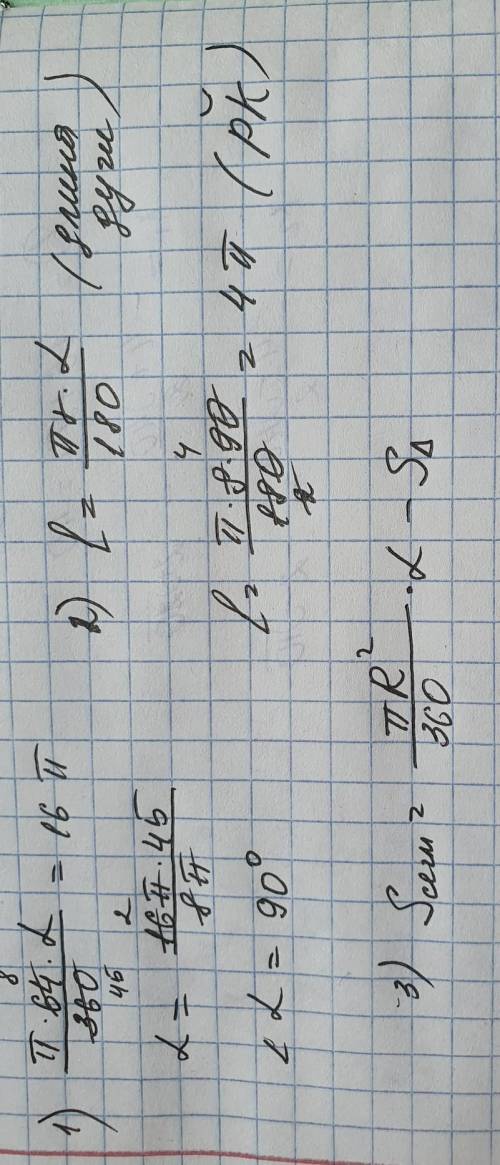 1) π·64·α/360 = 16π
8
45
α = 16π·45/8π
2
∠α = 90°
2) l = πr·α/180 (длина дуги)
l = π·8·90/180 = 4π (рк̆)
4
2
3) Sсегм = πR²/360 ·α − S∆